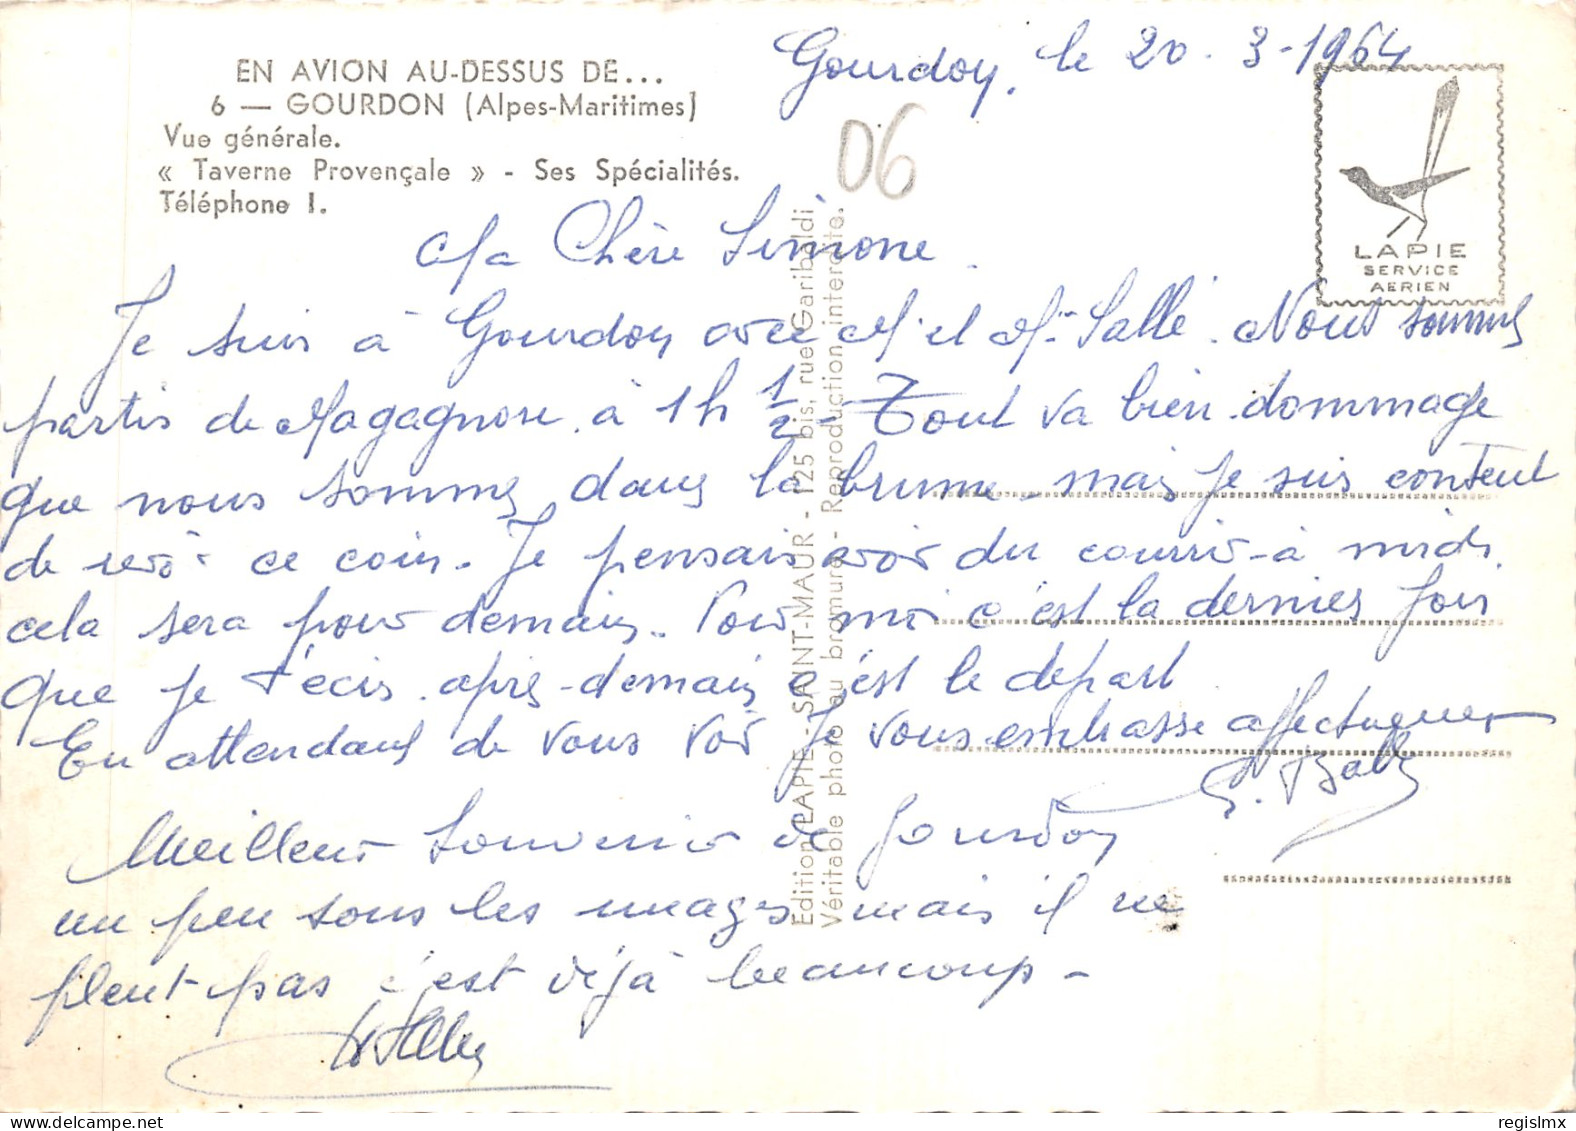 Gourdon, le 20-3-1964
EN AVION AU-DESSUS DE...
6 — GOURDON (Alpes-Maritimes)
Vue générale.
« Taverne Provençale » - Ses Spécialités.
Téléphone 1.
06
LAPIE
SERVICE
AERIEN
Ma Chère Simone.
Je suis à Gourdon avec M. et Mme Sallé. Nous sommes
partis de Magagnosc à 1h 1/2 - Tout va bien. dommage
que nous sommes dans la brume - mais je suis content
de revoir ce coin. Je pensais avoir du courrir à midi.
cela sera pour demain. Pour moi c'est la dernies fois
que je t'écis. après-demain c'est le départ
En attendant de vous voir je vous embrasse affectueuse
G.
Meilleur souvenir de Gourdon
un peu sous les nuages mais il ne
pleut pas c'est déjà beaucoup -
Edition LAPIE - SAINT-MAUR - 125 bis, rue Garibaldi
Véritable photo au bromure - Reproduction interdite.
regislmx